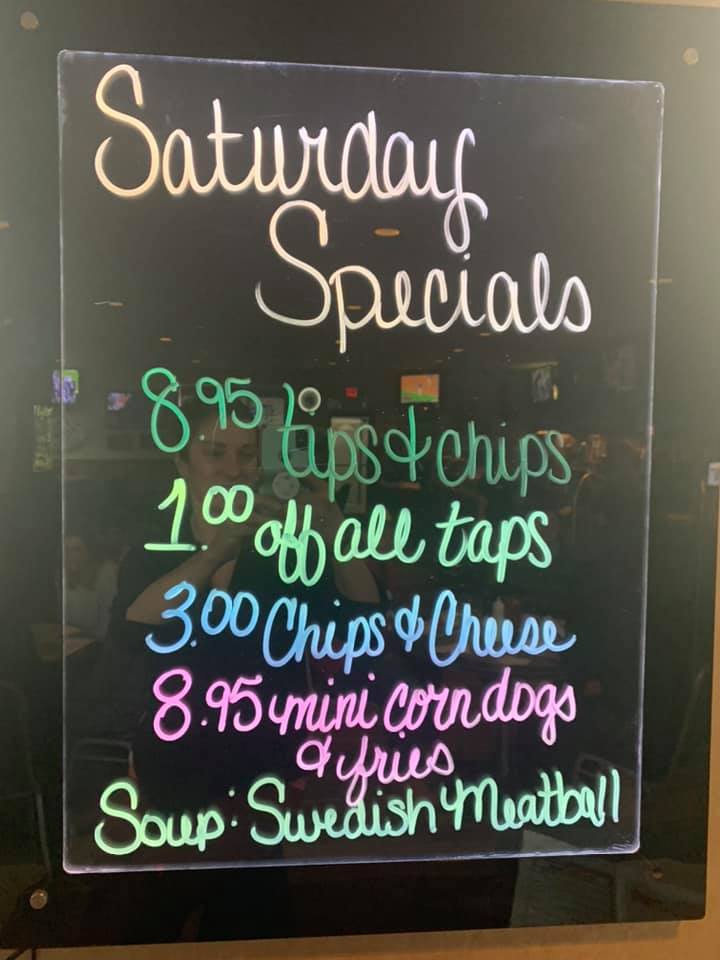 Saturday
Specials
8.95 tips & chips
1.00 off all taps
3.00 Chips & Cheese
8.95 mini corn dogs
& fries
Soup: Swedish Meatball